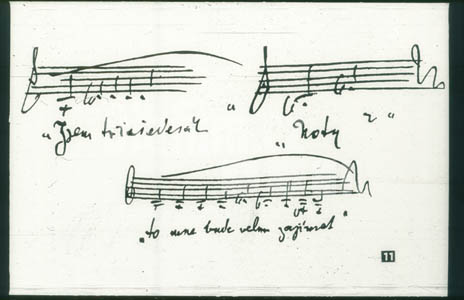 „Jsem
„Noty
„to mne bude velmi zajímat"
11